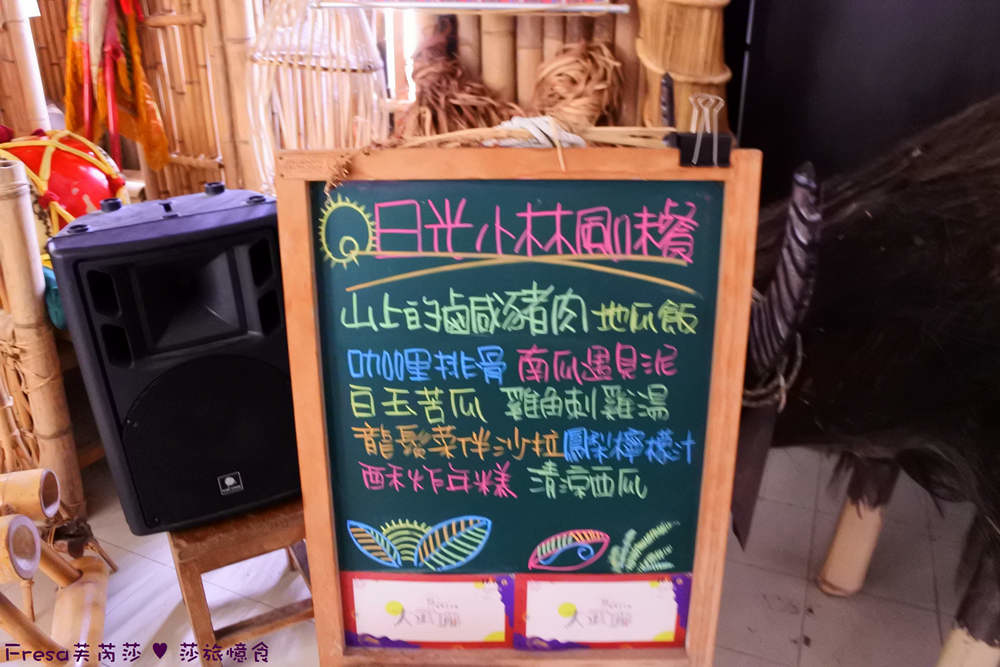 日光小林風味餐
山上的鹹豬肉 地瓜飯
咖哩排骨 南瓜遇見泥
白玉苦瓜 雞角刺雞湯
龍鬚菜伴沙拉 鳳梨檸檬汁
酥炸年糕 清涼西瓜
Fresa芙芮莎 ♥ 莎旅憶食